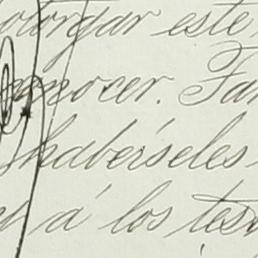 otorgar este
conocer. Fa
haberseles
y á los tes